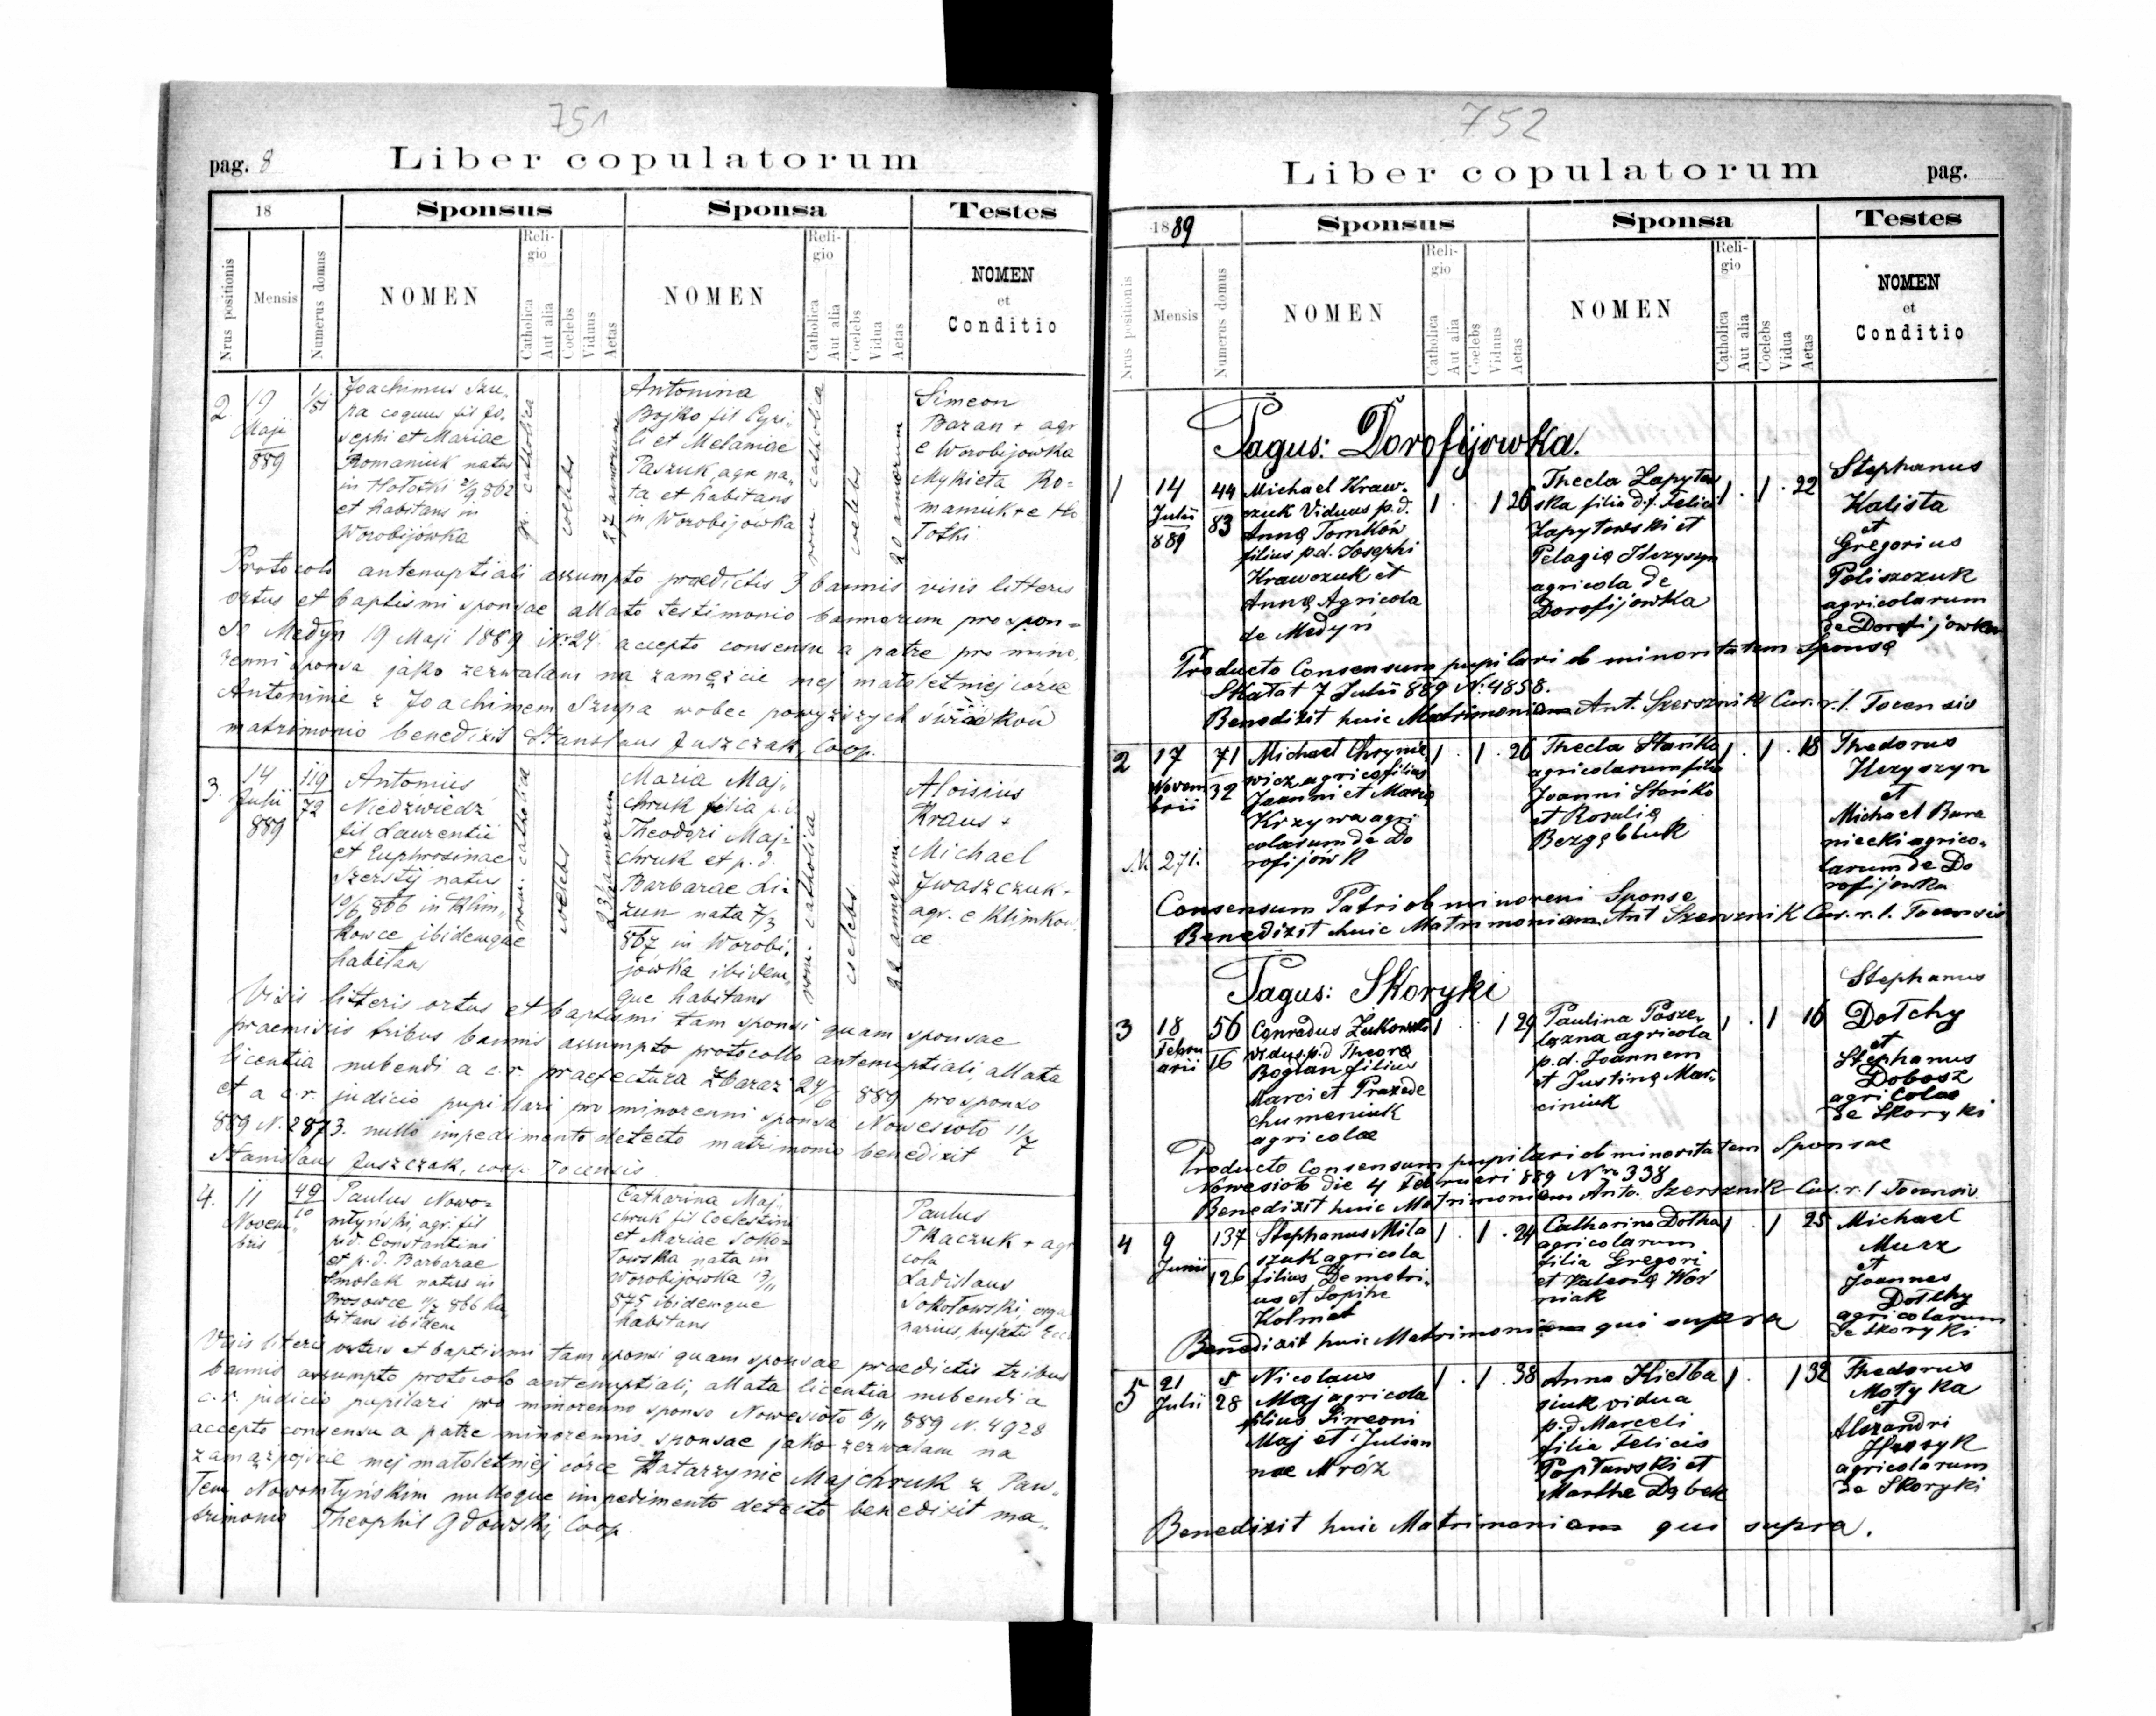 751
pag. 8
Liber copulatorum
18
Sponsus
Sponsa
Testes
Nrus positionis
Mensis
Numerus domus
NOMEN
Religio
Catholica
Aut alia
Coelebs
Viduus
Aetas
NOMEN
Religio
Catholica
Aut alia
Coelebs
Vidua
Aetas
NOMEN
et
Conditio
2.
19
Maji
889
1/81
Joachimus Szu-
pa coquus fil Jo-
sephi et Mariae
Romaniuk natus
in Hołotki 2/9 862
et habitans in
Worobijówka
gr. catholica
coelebs
27 annorum
Antonina
Bojko fil Cyri-
li et Melaniae
Paszuk, agr. na-
ta et habitans
in Worobijówka
rom. catholica
coelebs
20 annorum
Simeon
Baran + agr
e Worobijówka
Mykieta Ro-
maniuk + e Ho
łotki
Protocolo antenuptiali assumpto praedictis 3 bannis visis litteris
ortus et baptismi sponsae allato testimonio bannorum pro spon-
so Medyn 19 Maji 1889 Nr. 24 accepto consensu a patre pro mino-
renni sponsa jako zezwalam na zamęźcie mej małoletniej córce
Antoninie z Joachimem Szupa wobec powyższych świadków
matrimonio benedixit Stanslaus Juszczak, Coop.
3.
14
Julii
889
119
72
Antonius
Niedzwiedź
fil Laurentii
et Euphrosinae
Szerstij natus
10/6 866 in Klim-
kowce ibidemque
habitans
rom. catholica
coelebs
23 1/2 annorum
Maria Maj-
chruk filia p.d.
Theodori Maj-
chruk et p. d.
Barbarae Li-
zun nata 7/3
867 in Worobi-
jówka ibidem-
que habitans
rom. catholica
coelebs
22 annorum
Aloisius
Kraus +
Michael
Jwaszczuk +
agr. e Klimkow
ce
Visis litteris ortus et baptismi tam sponsi quam sponsae
praemissis tribus bannis assumpto protocollo antenuptiali, allata
licentia nubendi a c.r. praefectura Zbaraż 24/6 889 pro sponso
et a c.r. judicio pupillari pro minorenni sponsa Nowesioło 11/7
889 N. 2873. nullo impedimento detecto matrimonio benedixit
Stanislaus Juszczak, coop. Tocensis.
4.
11
Novem-
bris
49
10
Paulus Nowo-
młyński, agr. fil
p.d. Constantini
et p.d. Barbarae
Smolak natus in
Prosowce 11/7 866 ha
bitans ibidem
Catharina Maj-
chruk fil Coelestini
et Mariae Soko-
łowska nata in
Worobijówka 13/11
875 ibidemque
habitans
Paulus
Tkaczuk + agr
cola
Ladislaus
Sokołowski, orga
narius, hujatis
Visis literis ortus et baptismi tam sponsi quam sponsae praedictis tribus
bannis assumpto protocolo antenuptiali, allata licentia nubendi a
c.r. judicio pupilari pro minorenno sponso Nowesioło 6/11 889 N. 4928
accepto consensu a patre minorennis sponsae jako zezwalam na
zamążpójście mej małoletniej córce Katarzynie Majchruk z Paw-
łem Nowomłyńskim nulloque impedimento detecto benedixit ma-
trimonio Theophil Gdowski, Coop.
752
Liber copulatorum
pag.
1889
Sponsus
Sponsa
Testes
Nrus positionis
Mensis
Numerus domus
NOMEN
Religio
Catholica
Aut alia
Coelebs
Viduus
Aetas
NOMEN
Religio
Catholica
Aut alia
Coelebs
Vidua
Aetas
NOMEN
et
Conditio
Pagus: Dorofijowka.
1
14
Julii
889
44
83
Michael Kraw-
czuk Viduus p.d.
Annę Tomków
filius p.d. Josephi
Krawczuk et
Annę Agricola
de Medyń
1 . . 1 26
Thecla Zapytow
ska filia d.f. Felici
Zapytowski et
Pelagię Hryszyn
agricola de
Dorofijowka
1 . 1 . 22
Stephanus
Kalista
et
Gregorius
Poliszczuk
agricolarum
de Dorofijowka
Producto Consensum pupilari ob minoritatem Sponsę
Skałat 7 Julii 889 N. 4858.
Benedixit huic Matrimoniam Ant. Szersznik Cur. r. l. Tocensis
2
17
Novem
brii
71
32
Michael Chrynie
wicz agricola filius
Joanni et Marię
Krzywa agri
colarum de Do
rofijówk
N. 271.
1 . 1 . 26
Thecla Stańko
agricolarum filia
Joanni Stańko
et Rosalię
Bezgębluk
1 . 1 . 18
Thedorus
Hryszyn
et
Michael Bara
niecki agrico-
larum de Do
rofijowka
Consensum Patri ob minoreni Sponse
Benedixit huic Matrimoniam Ant Szersznik Cur. r. l. Tocensis
Pagus: Skoryki
3
18
Febru
arii
56
16
Conradus Żukowski
vidus p.d Theorę
Boglan filius
Marci et Praxede
Chumeniuk
agricolae
1 . . 1 29
Paulina Pasze-
lązna agricola
p.d. Joannem
et Justinę Mar-
ciniuk
1 . 1 16
Stephanus
Dołchy
et
Stephanus
Dobosz
agricolae
de Skoryki
Producto Consensum pupilari ob minoritatem Sponsae
Nowesioło die 4 Februari 889 Nro 338
Benedixit huic Matrimoniam Anto. Szersznik Cur. r. l Tocensis
4
9
Junii
137
126
Stephanus Mila
szuk agricola
filius Demetri-
us et Sopihe
Kolmat
1 . 1 . 24
Catharina Dołha
agricolarum
filia Gregori
et Valerię Woź
niak
1 . 1 25
Michael
Murz
et
Joannes
Dołthy
agricolarum
de Skoryki
Benedixit huic Matrimoniam qui supra
5
21
Julii
5
28
Nicolaus
Maj agricola
filius Simeoni
Maj et Julian
nae Mróz
1 . 1 . 38
Anna Kiełba
siuk vidua
p.d Marceli
filia Felicis
Popławski et
Marthe Dąbek
1 . 1 32
Thedorus
Motyka
et
Alexandri
Hrosyk
agricolarum
de Skoryki
Benedixit huic Matrimoniam qui supra.